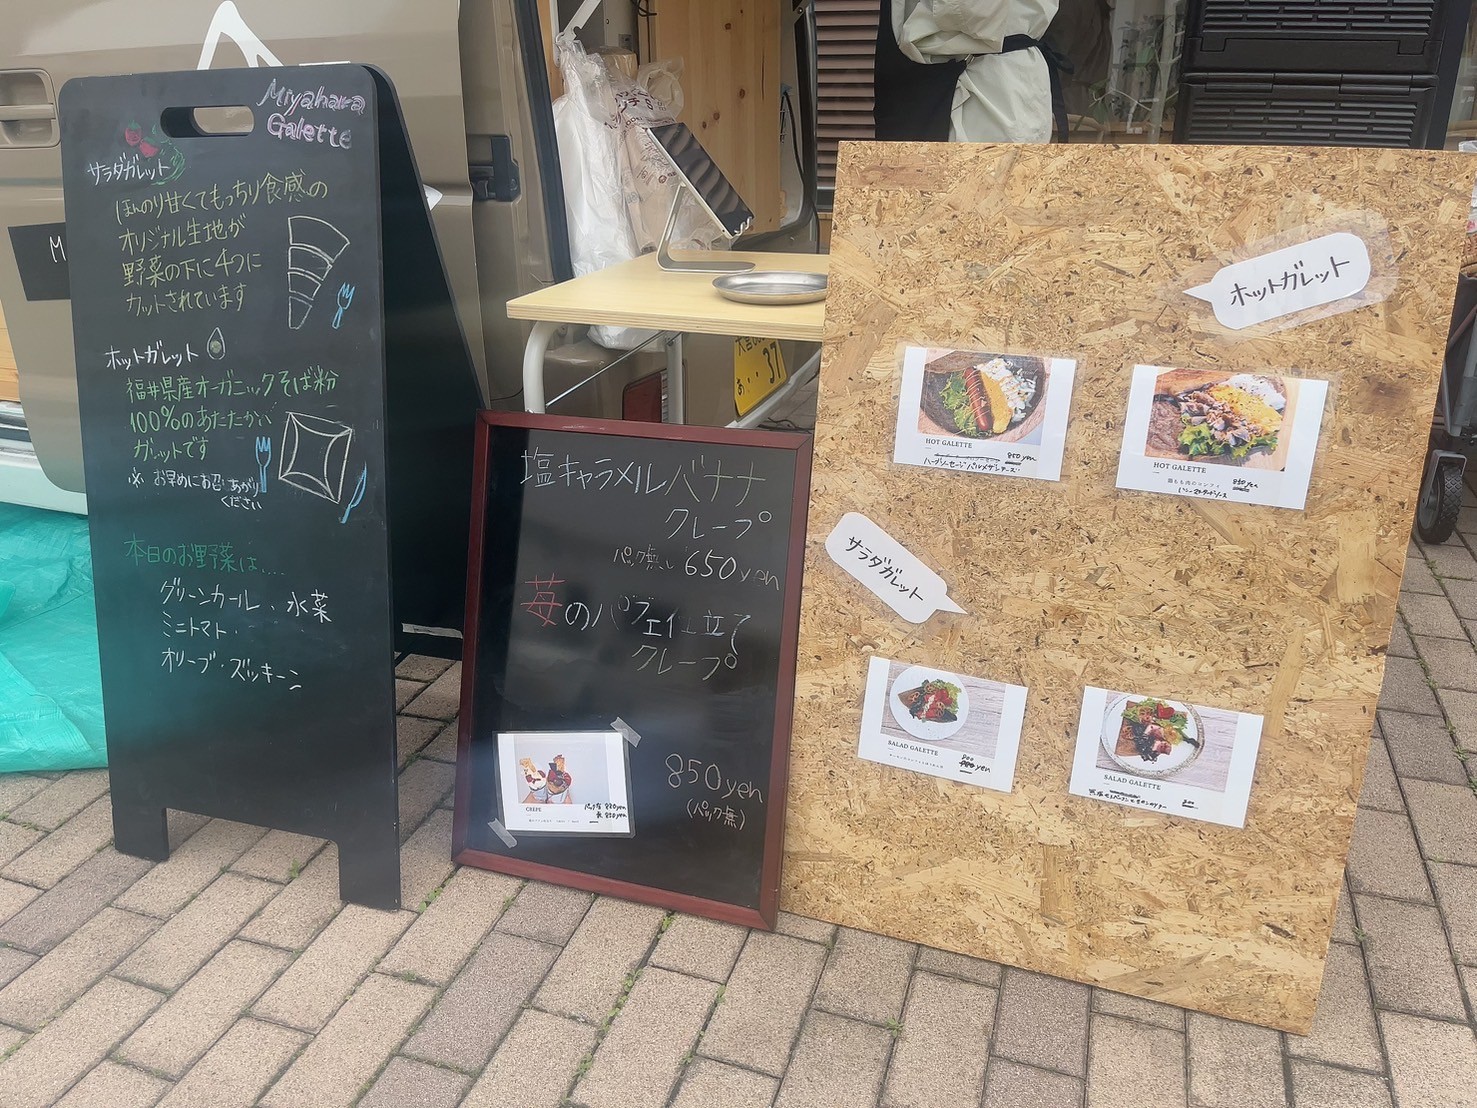 Miyahara
Galette
サラダガレット
ほんのり甘くてもっちり食感の
オリジナル生地が
野菜の下に4つに
カットされています
ホットガレット
福井県産オーガニックそば粉
100%のあたたかい
ガレットです
※ お早めにお召しあがり
ください
本日のお野菜は....
グリーンカール、水菜
ミニトマト・
オリーブ・ズッキーニ
M
塩キャラメルバナナ
クレープ
パック無し 650yen
苺のパフェ仕立て
クレープ
850yen
(パック無)
CREPE
パック有 880yen
無 850yen
37
ホットガレット
HOT GALETTE
850yen
ハーブソーセージ パルメザンチーズ
HOT GALETTE
鶏もも肉のコンフィ 850yen
ハニーマスタードソース
サラダガレット
SALAD GALETTE
900
yen
SALAD GALETTE